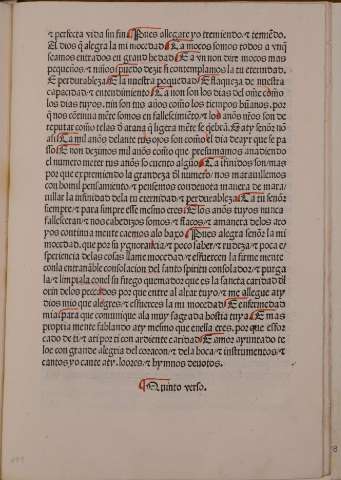 ⁊ perfecta vida sin fin Pues allegare yo tremiendo ⁊ temiẽdo.
El dios q̃ alegra la mi mocedad Ca moços somos todos a vnq̃
seamos entrados en grand hedad E a vn non dire moços mas
pequeños ⁊ niños puedo dezir si contemplamos la tu eternidad.
E perdurableza E la nuestra poquedad E flaqueza de nuestra
capacidad ⁊ entendimiẽto Ca non son los dias del om̃e como
los dias tuyos. nin son tus años como los tiempos hũanos. por
q̃ nos cõtinua mẽte somos en fallescimiẽto ⁊ los años nr̃os son de
reputar como telas d araña q̃ ligera mẽte se q̃ebrã. E aty señor nõ
asi Ca mil años delante tus ojos son como el dia de ayr que se pa
sso E non dezimos mil años como que presumamos anadiendo
el numero meter tus años so cuento algũo Ca ifinidos son mas
por que expremiendo la grandeza dl numero nos marauillemos
con bomil pensamiento ⁊ pensemos con deuota manera de mara
uillar la infinidad dela tu eternidad ⁊ perdurableza Ca tu señor
siempre ⁊ para simpre esse mesmo eres E los años tuyos nunca
fallesceran ⁊ nos cabedizos somos ⁊ flacos ⁊ a manera delos aro
yos continua mente caemos alo baxo Pues alegra señor la mi
mocedad. que por su ygnorancia ⁊ poco saber ⁊ rudeza ⁊ poca es
speriencia delas cosas llame mocedad ⁊ esfuercen la firme mente
con la entrañable consolacion del santo spiritu consolador ⁊ purga
la ⁊ limpiala conel su fuego quemador que es la sancta caridad dl
orin delos peccados por que entre al altar tuyo ⁊ me allegue aty
dios mio que alegres ⁊ esfuerces la mi mocedad E enfermedad
mia para que comunique ala muy sagrada hostia tuya E mas
propria mente fablando aty mesmo que enella eres. por que esfor
çado de ti ⁊ ati por ti con ardiente caridad E amor ayuntado te
loe con grande alegria del coraçon ⁊ dela boca ⁊ instrumentos ⁊
cantos yo cante aty. loores ⁊ hymnos deuotos.
Quinto verso.